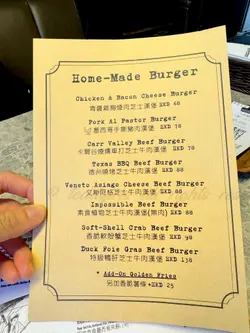 Home-Made Burger
Chicken & Bacon Cheese Burger
HKD 68
Pork Al Pastor Burger
墨西哥手撕豬肉漢堡 HKD 78
Carr Valley Beef Burger
HKD 78
Texas BBQ Beef Burger
德州燒烤芝士牛肉漢堡 HKD 88
Veneto Asiago Cheese Beef Burger
艾斯阿格芝士牛肉漢堡 HKD 88
Impossible Beef Burger
素食植物芝士牛肉漢堡(無肉) HKD 88
Soft-Shell Crab Beef Burger
香脆軟殼蟹芝士牛肉漢堡 HKD 98
Duck Foie Gras Beef Burger
特級鴨肝芝士牛肉漢堡 HKD 138
* Add-On Golden Fries
另加香脆薯條 +HKD 25